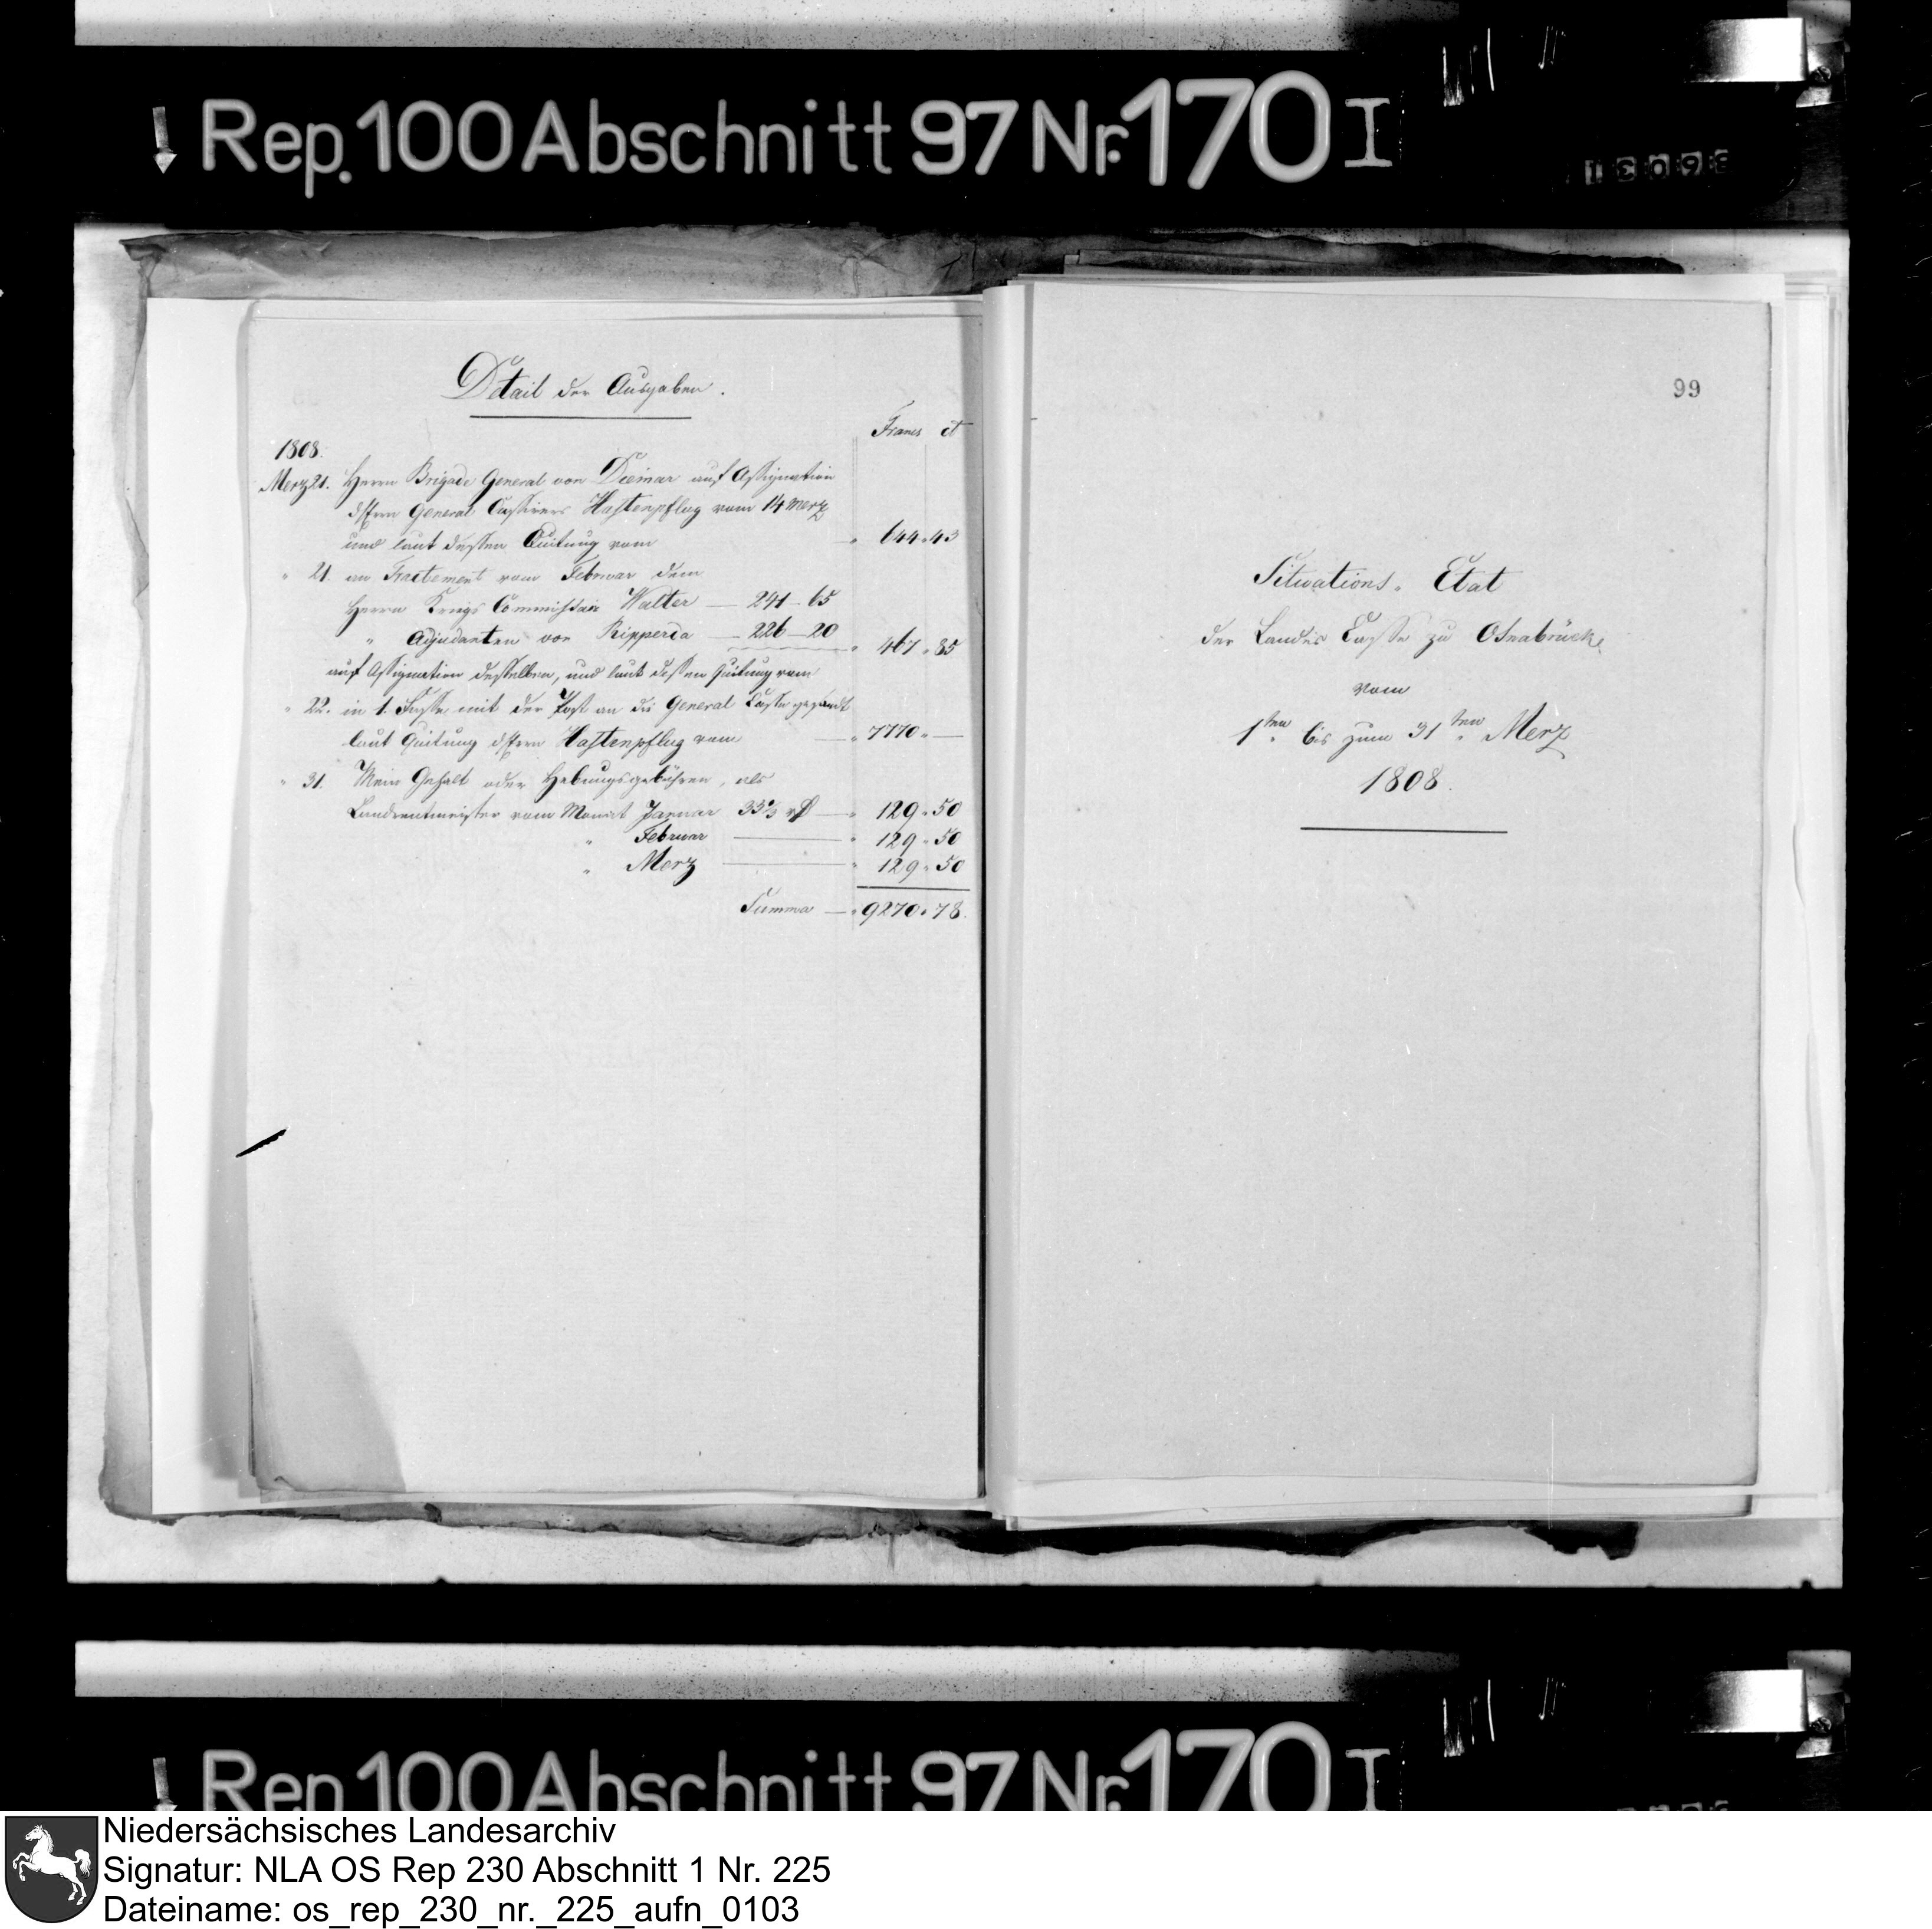 Rep. 100 Abschnitt 97 Nr. 170 I
Detail der Ausgaben.
Francs ct
1808.
Merz 21. Herrn Brigade General von Diemar auf Assignation
General Cassirers Hastenpflug vom 14 Merz
und laut dessen Quitung vom " 644 " 43
" 21. an Tractement vom Februar dem
Herrn Kriegs Commissair Walter — 241 - 65
" Adjudanten von Ripperda — 226 - 20 " 467 " 85
auf Assignation desselben, und laut dessen Quitung vom
" 22. in 1. Fasse mit der Post an die General Casse gesandt
laut Quitung Hastenpflug vom — " 7770 " —
" 31. Mein Gehalt oder Hebungsgebühren, als
Landrentmeister vom Monat Januar 33 1/3 — " 129 " 50
" Februar — " 129 " 50
" Merz — " 129 " 50
Summa — " 9270 " 78.
99
Situations-Etat
der Landes Casse zu Osnabrück
vom
1ten bis zum 31ten Merz
1808.
Rep. 100 Abschnitt 97 Nr. 170 I
Niedersächsisches Landesarchiv
Signatur: NLA OS Rep 230 Abschnitt 1 Nr. 225
Dateiname: os_rep_230_nr._225_aufn_0103